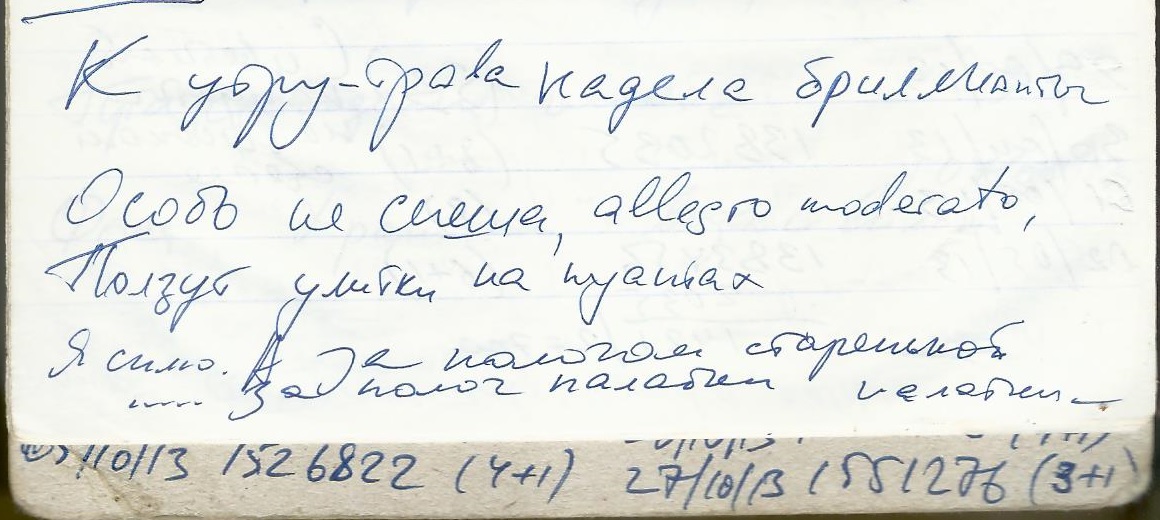 К утру-трава надела бриллианты
Особо не спеша, allegro moderato,
Ползут улитки на пуантах
Я сплю. А за пологом старенькой
..... За полог палатки палатки
/10/13 1526822 (4+1) 27/10/13 1551276 (3+1)